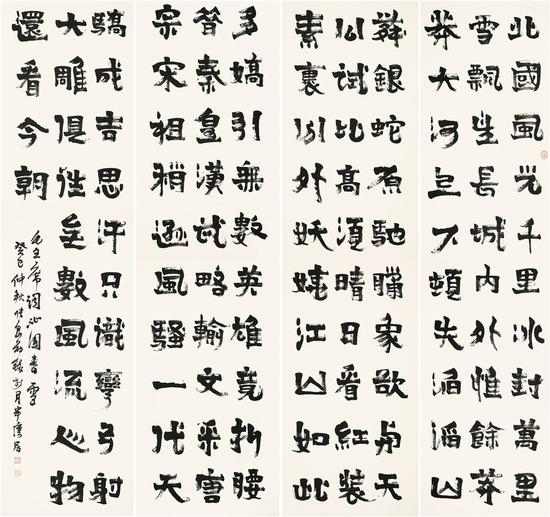 北國風光千里冰封萬里
雪飄望長城內外惟餘莽
莽大河上下頓失滔滔山
舞銀蛇原馳臘象欲与天
公試比高須晴日看紅裝
素裹分外妖嬈江山如此
多嬌引無數英雄競折腰
惜秦皇漢武略輸文采唐
宗宋祖稍遜風騷一代天
驕成吉思汗只識彎弓射
大雕俱往矣數風流人物
還看今朝
毛主席詞沁園春雪
癸巳仲秋